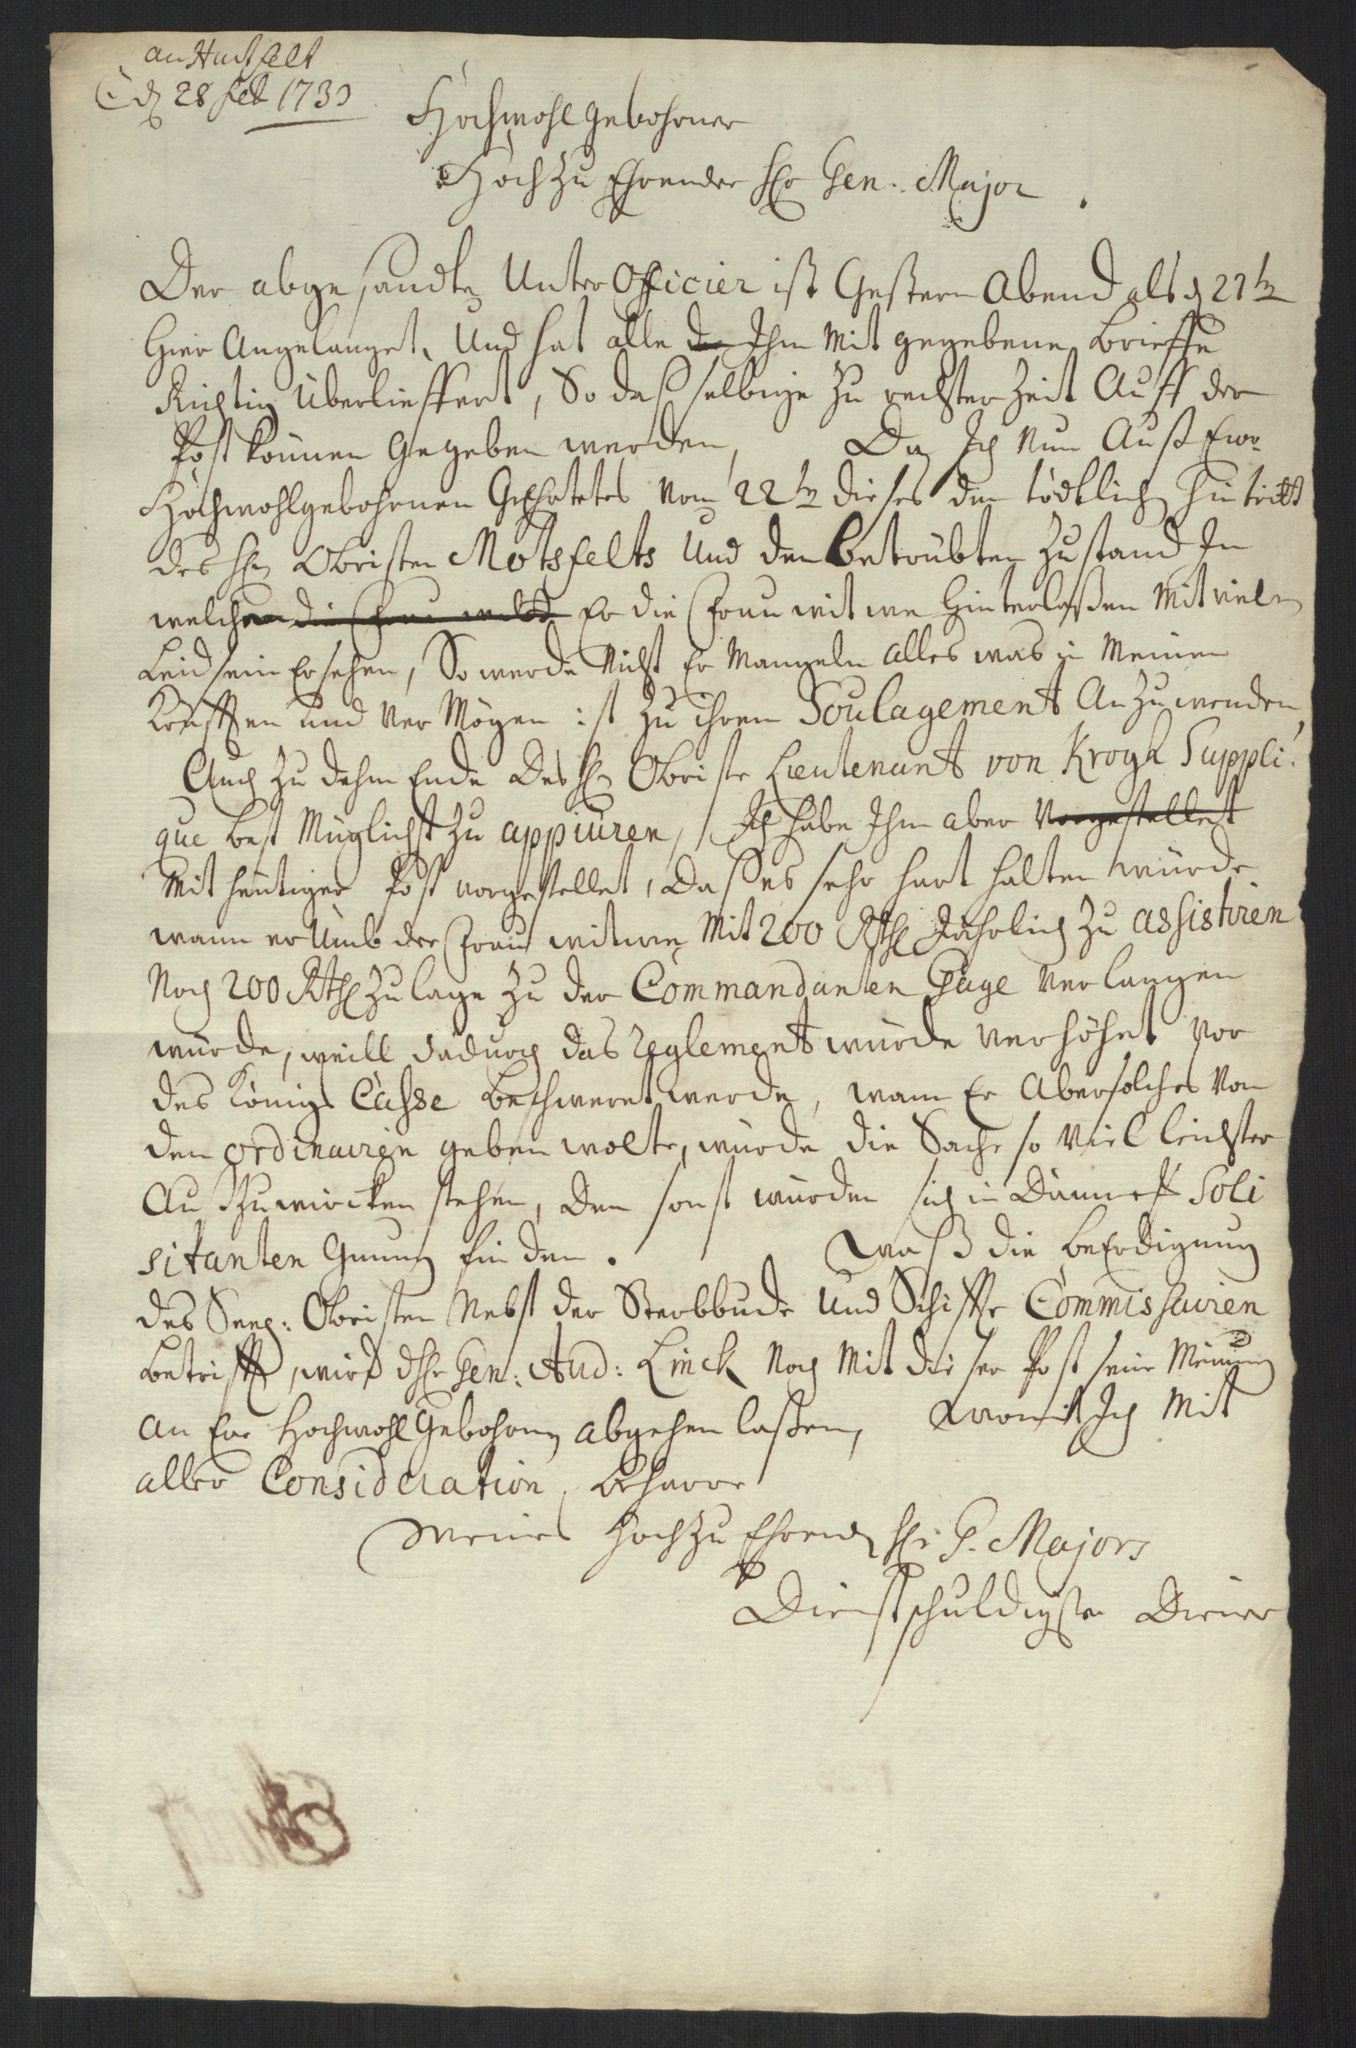 an Hartfelt
C. d. 28 feb 1733
Hochwohlgebohrner
Hochzu Ehrender Hr Gen. Major
Der abgesandte Unter Officier ist Gestern Abend als d 27ten
hier Angelanget, Und hat alle de Ihm Mit gegebene Brieffe
Richtig Überlieffert, So daß selbige zu rechter Zeit Auff der
Post können Gegeben werden, Da Ich Nun Auß Ewr
Hochwohlgebohrnen Geehrtetes Vom 22ten dieses den tödtlich hintritt
des Hn Obristen Motsfelts Und den betrübten Zustand In
welchen die Frau witb Er die Frau witwe Hinterlaßen Mit vielen
Leidsein Ersehen, So werde Nicht Er Mangeln alles was in Meinen
Kräfften und Ver Mögen ist zu ihrem Soulagement Anzuwenden,
Auch zu dehm Ende Des Hn Obriste Lieutenant von Krogh Suppli-
que best Müglichst zu appiuren, Ich habe Ihm aber Vorgestellet
Mit heutiger Post vorgestellet, daß es sehr hart halten würde
wann er Umb der Frau witwe Mit 200 Rthl Jährlich zu assistiren
Noch 200 Rthl Zulage zu der Commandanten Gage Verlangen
würde, weill dadurch das reglement würde verhöhet Vor
des Königs Casse beschweret werde, wann Er Aber solches Von
den ordinairen geben wolte, würde die Sache so Viel leichter
Außzuwircken stehen, den sonst würden sich in Dännem Soli
sitanten Gnung finden. Waß die beErdigung
des Seel: Obristen Nebst der Sterbbude Und Schiffs Commissairen
betrifft, wird d Hr Gen: Aud: Linck Noch Mit dieser Post seine Meinung
an Ew Hochwohl Gebohrn abgehen laßen, Womit Ich Mit
aller Consideration beharre
Meines Hochzu Ehrend Hr G. Majors
Dienstschuldigster Diener